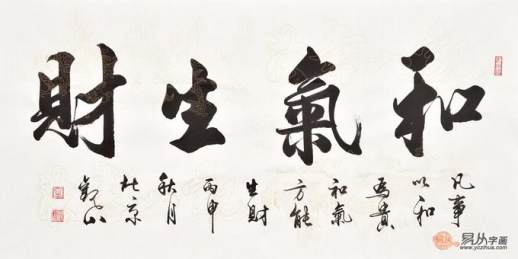 和氣生財
凡事
以和
為貴
和氣
方能
生財
丙申
秋月
北京
觀山
易从字画
www.yczihua.com